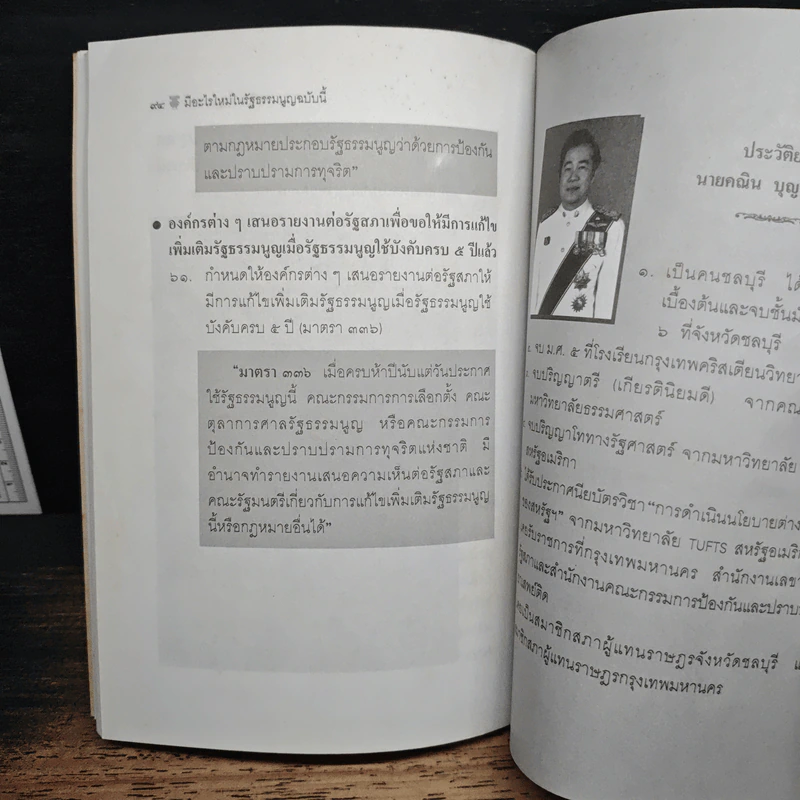 ๙๔ มีอะไรใหม่ในรัฐธรรมนูญฉบับนี้
ตามกฎหมายประกอบรัฐธรรมนูญว่าด้วยการป้องกัน
และปราบปรามการทุจริต”
● องค์กรต่าง ๆ เสนอรายงานต่อรัฐสภาเพื่อขอให้มีการแก้ไข
เพิ่มเติมรัฐธรรมนูญเมื่อรัฐธรรมนูญใช้บังคับครบ ๕ ปีแล้ว
๖๑. กำหนดให้องค์กรต่าง ๆ เสนอรายงานต่อรัฐสภาให้
มีการแก้ไขเพิ่มเติมรัฐธรรมนูญเมื่อรัฐธรรมนูญใช้
บังคับครบ ๕ ปี (มาตรา ๓๓๖)
“มาตรา ๓๓๖ เมื่อครบห้าปีนับแต่วันประกาศ
ใช้รัฐธรรมนูญนี้ คณะกรรมการการเลือกตั้ง คณะ
ตุลาการศาลรัฐธรรมนูญ หรือคณะกรรมการ
ป้องกันและปราบปรามการทุจริตแห่งชาติ มี
อำนาจทำรายงานเสนอความเห็นต่อรัฐสภาและ
คณะรัฐมนตรีเกี่ยวกับการแก้ไขเพิ่มเติมรัฐธรรมนูญ
นี้หรือกฎหมายอื่นได้”
ประวัติย
นายคณิน บุญ
๑. เป็นคนชลบุรี ได้
เบื้องต้นและจบชั้นมั
๖ ที่จังหวัดชลบุรี
จบ ม.ศ. ๕ ที่โรงเรียนกรุงเทพคริสเตียนวิทยา
จบปริญญาตรี (เกียรตินิยมดี) จากคณ
มหาวิทยาลัยธรรมศาสตร์
จบปริญญาโททางรัฐศาสตร์ จากมหาวิทยาลัย
สหรัฐอเมริกา
ได้รับประกาศนียบัตรวิชา “การดำเนินนโยบายต่าง
ของสหรัฐฯ” จากมหาวิทยาลัย TUFTS สหรัฐอเมริก
เคยรับราชการที่กรุงเทพมหานคร สำนักงานเลขา
รัฐสภาและสำนักงานคณะกรรมการป้องกันและปราบ
ยาเสพย์ติด
เคยเป็นสมาชิกสภาผู้แทนราษฎรจังหวัดชลบุรี แ
มาชิกสภาผู้แทนราษฎรกรุงเทพมหานคร